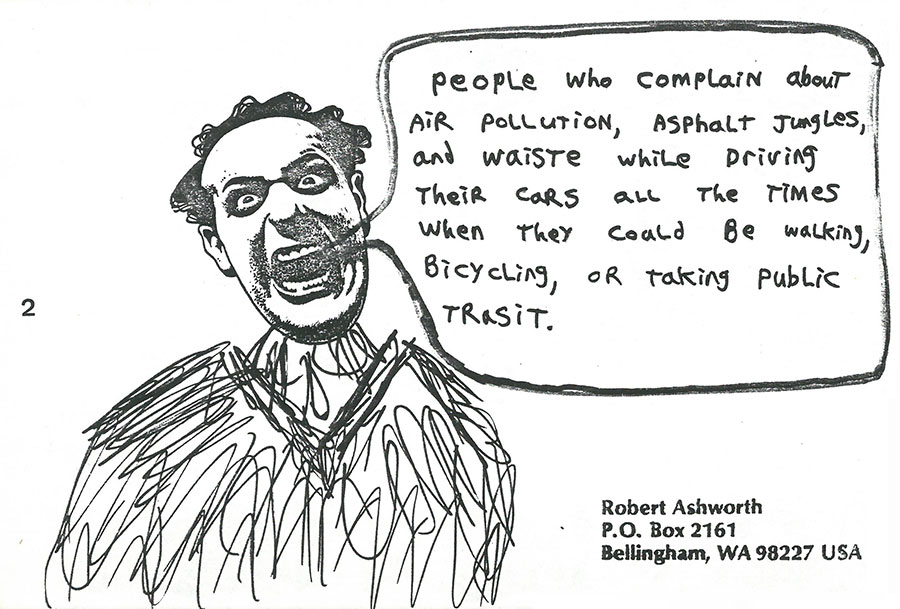 PEOPLE WHO COMPLAIN about
AIR POLLUTION, ASPHALT JUNGLES,
and WAISTE while DRIVING
THEIR CARS all THE TIMES
when THEY could Be walking,
BICYCLING, OR TAKING PUBLIC
TRASIT.
2
Robert Ashworth
P.O. Box 2161
Bellingham, WA 98227 USA